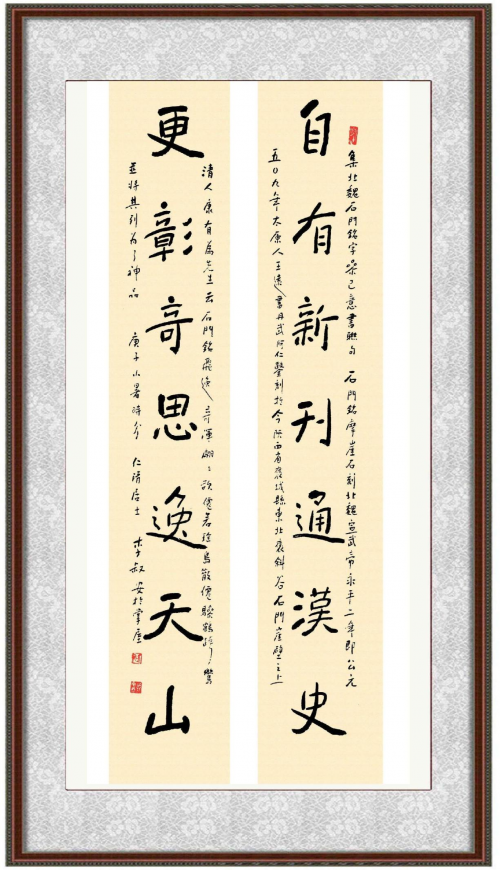 集北魏石門銘字參己意書聯句 石門銘摩崖石刻北魏宣武帝永平二年即公元
自有新刊通漢史
五〇九年太原人王遠書丹武阿仁鑿刻於今陝西省襃城縣東北襃斜谷石門崖壁之上
清人康有為先生云石門銘飛逸奇渾翩翩欲僊若瑤島散僊驂
更彰奇思逸天山
並將其列為了神品 庚子小暑時分 居士 李叔安於